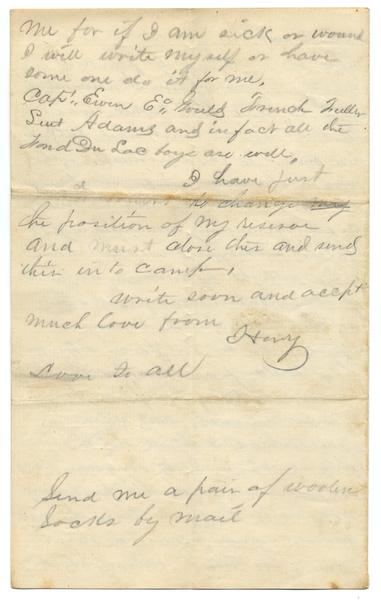 me for if I am sick or wound
I will write myself or have
some one do it for me,
Capt, Ewen Ed Gould French Fuller
Lieut Adams and in fact all the
Fond Du Lac boys are well,
I have just
to change my
the position of my reserve
and must close this and send
this in to camp,
write soon and accept
much love from
Henry
Love to all
Send me a pair of woolen
Socks by mail